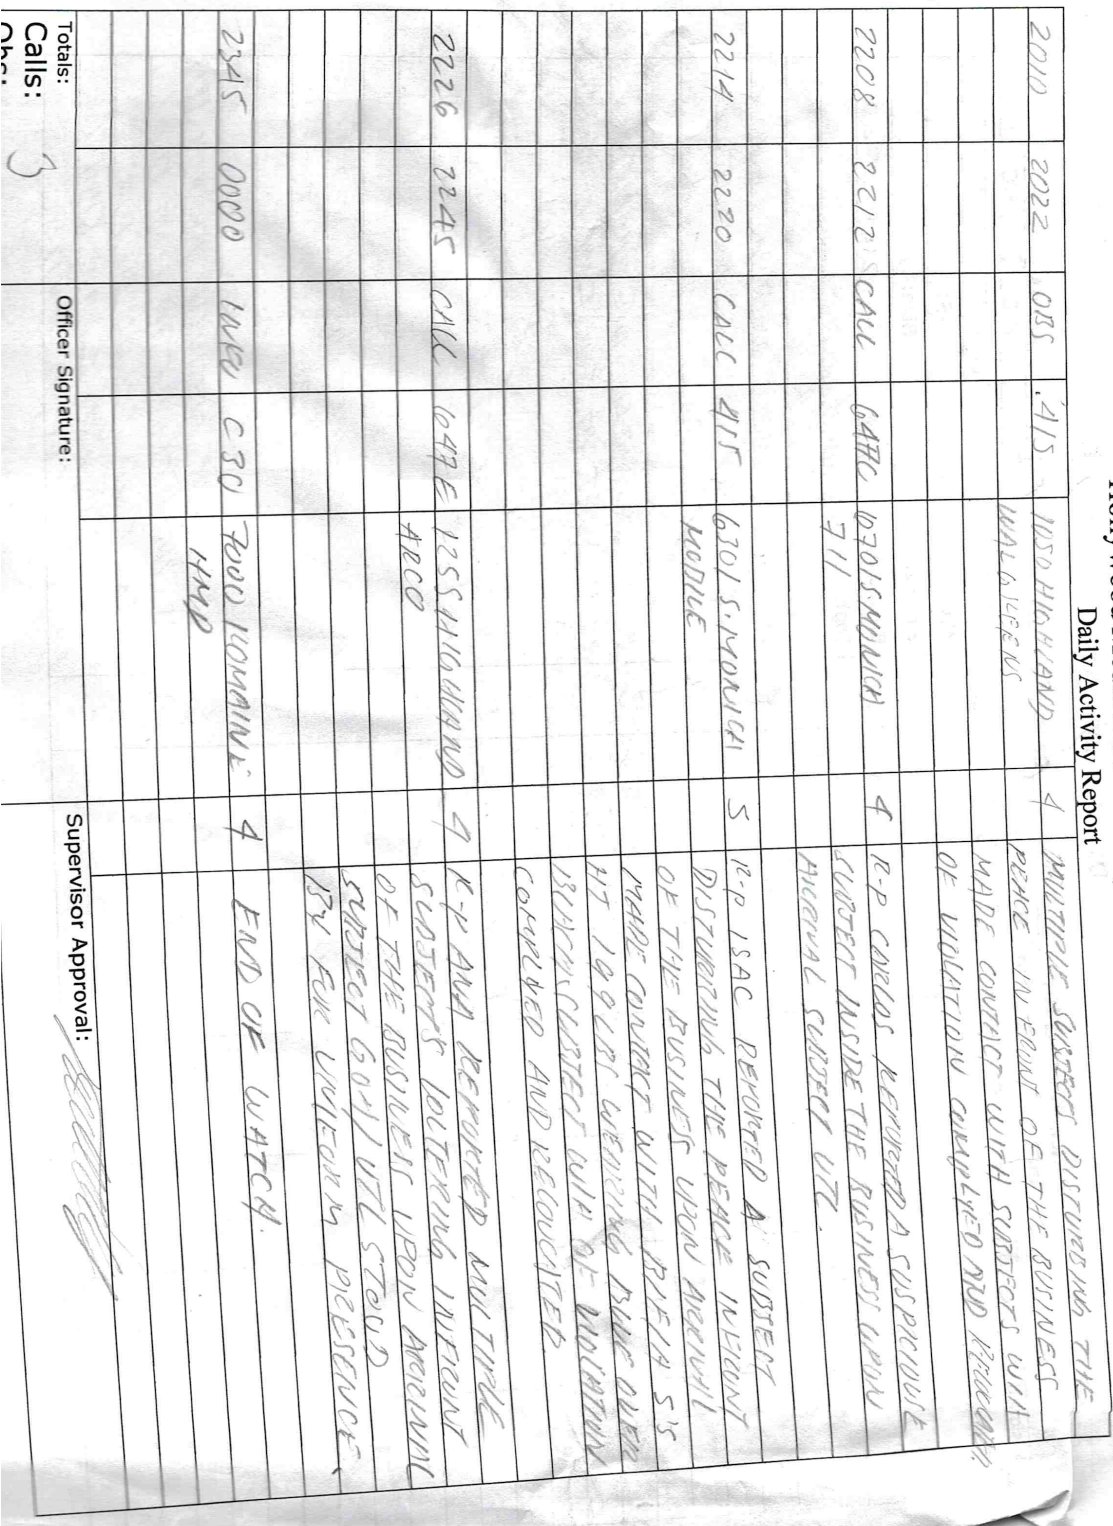 Daily Activity Report
2010 2022 OBS 415 1050 HIGHLAND 4 MULTIPLE SUBJECTS DISTURBING THE
WALGREENS PEACE IN FRONT OF THE BUSINESS
MADE CONTACT WITH SUBJECTS W/A
OF VIOLATION COMPLYED AND
2208 2212 CALL 6701 S. MONICA 4 R-P CARLOS REPORTED A SUSPICIOUSE
711 SUBJECT INSIDE THE BUSINESS UPON
ARRIVAL SUBJECT UTL.
2214 2220 CALL 415 6301 S. MONICA 5 R-P ISAC REPORTED A SUBJECT
MOBILE DISTURBING THE PEACE INFRONT
OF THE BUSINES UPON ARRIVAL
MADE CONTACT WITH 5'5
HT 190 LBS WEARING BLUE OVER
SUBJECT W/A OF VIOLATION
COMPLYED AND RELOUCATED.
2226 2245 CALL 647E 1255 HIGHLAND 4 R-P ANA REPORTED MULTIPLE
ARCO SUBJECTS LOITERING INFRONT
OF THE BUSINESS UPON ARRIVAL
SUBJECT GOA/UTL STOOD
BY FOR UNIFORM PRESENCE.
2345 0000 INFO C30 7000 ROMAINE 4 END OF WATCH.
HMD
Totals:
Calls: 3
Obs:
Officer Signature:
Supervisor Approval: